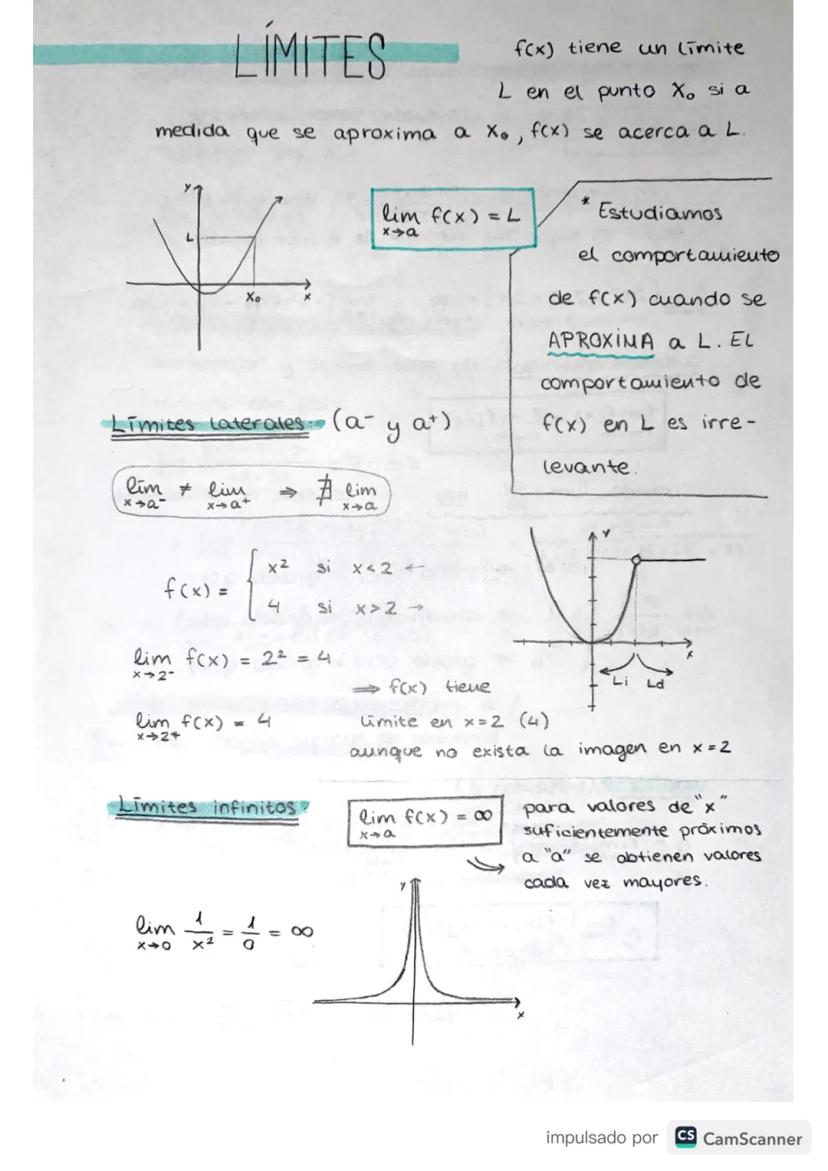 LÍMITES
f(x) tiene un límite
L en el punto x₀ si a
medida que se aproxima a x₀, f(x) se acerca a L.
y
L
x₀
x
lim f(x) = L
x→a
* Estudiamos
el comportamiento
de f(x) cuando se
APROXIMA a L. El
comportamiento de
f(x) en L es irre-
levante.
Límites laterales: (a⁻ y a⁺)
lim ≠ lim ⇒ ∄ lim
x→a⁻ x→a⁺ x→a
f(x) = { x² si x<2 ←
4 si x>2 →
y
x
Li Ld
lim f(x) = 2² = 4
x→2⁻
⇒ f(x) tiene
lim f(x) = 4
x→2⁺
límite en x=2 (4)
aunque no exista la imagen en x=2
Límites infinitos:
lim f(x) = ∞
x→a
para valores de "x"
suficientemente próximos
a "a" se obtienen valores
cada vez mayores.
lim 1/x² = 1/0 = ∞
x→0
y
x
impulsado por CS CamScanner